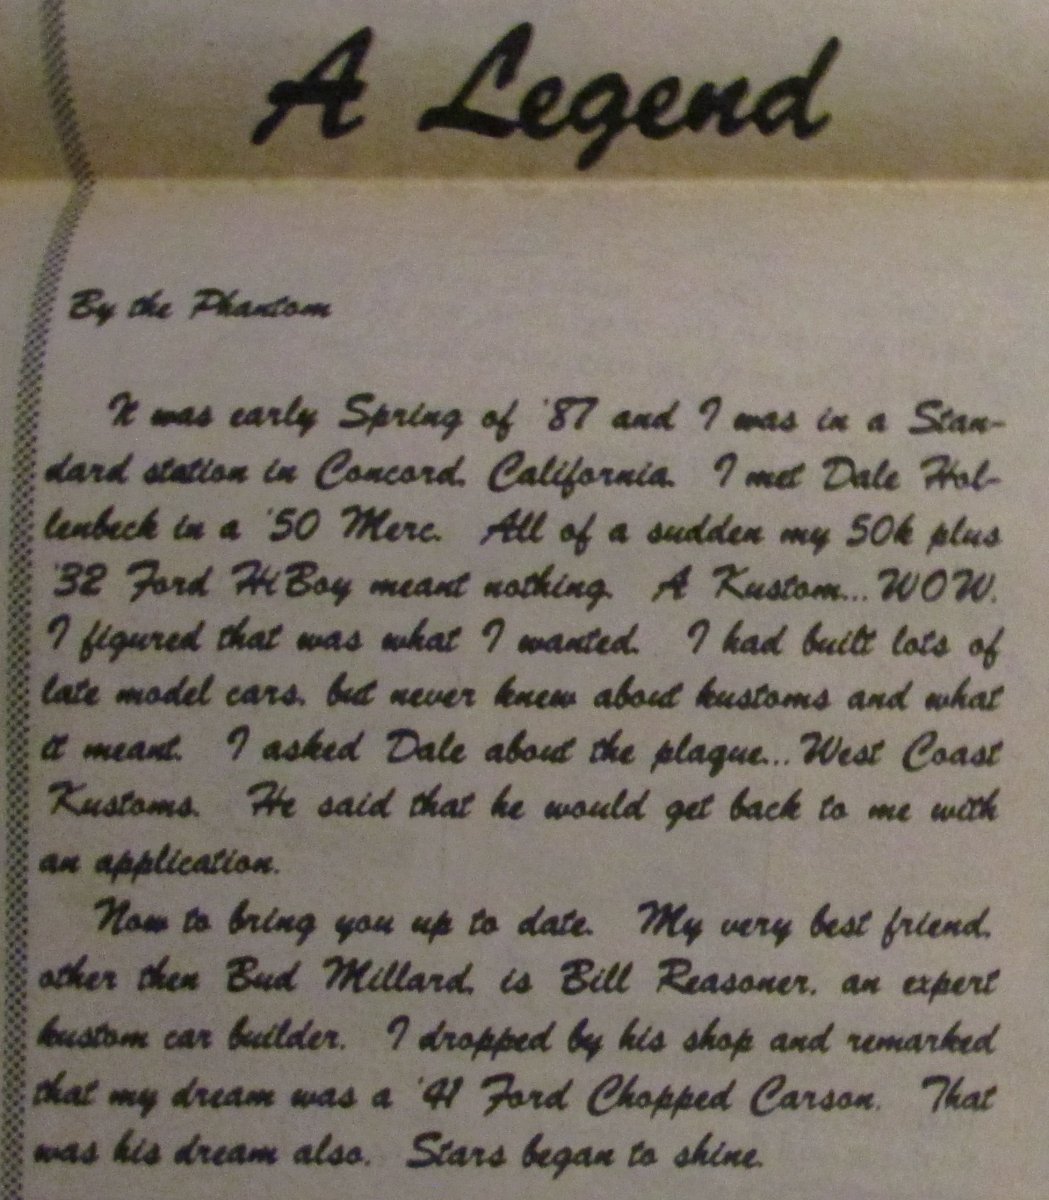 A Legend
By the Phantom
It was early Spring of '87 and I was in a Stan-
dard station in Concord, California. I met Dale Hol-
lenbeck in a '50 Merc. All of a sudden my 50k plus
'32 Ford HiBoy meant nothing. A Kustom...WOW.
I figured that was what I wanted. I had built lots of
late model cars, but never knew about kustoms and what
it meant. I asked Dale about the plaque...West Coast
Kustoms. He said that he would get back to me with
an application.
Now to bring you up to date. My very best friend,
other then Bud Millard, is Bill Reasoner, an expert
kustom car builder. I dropped by his shop and remarked
that my dream was a '41 Ford Chopped Carson. That
was his dream also. Stars began to shine.